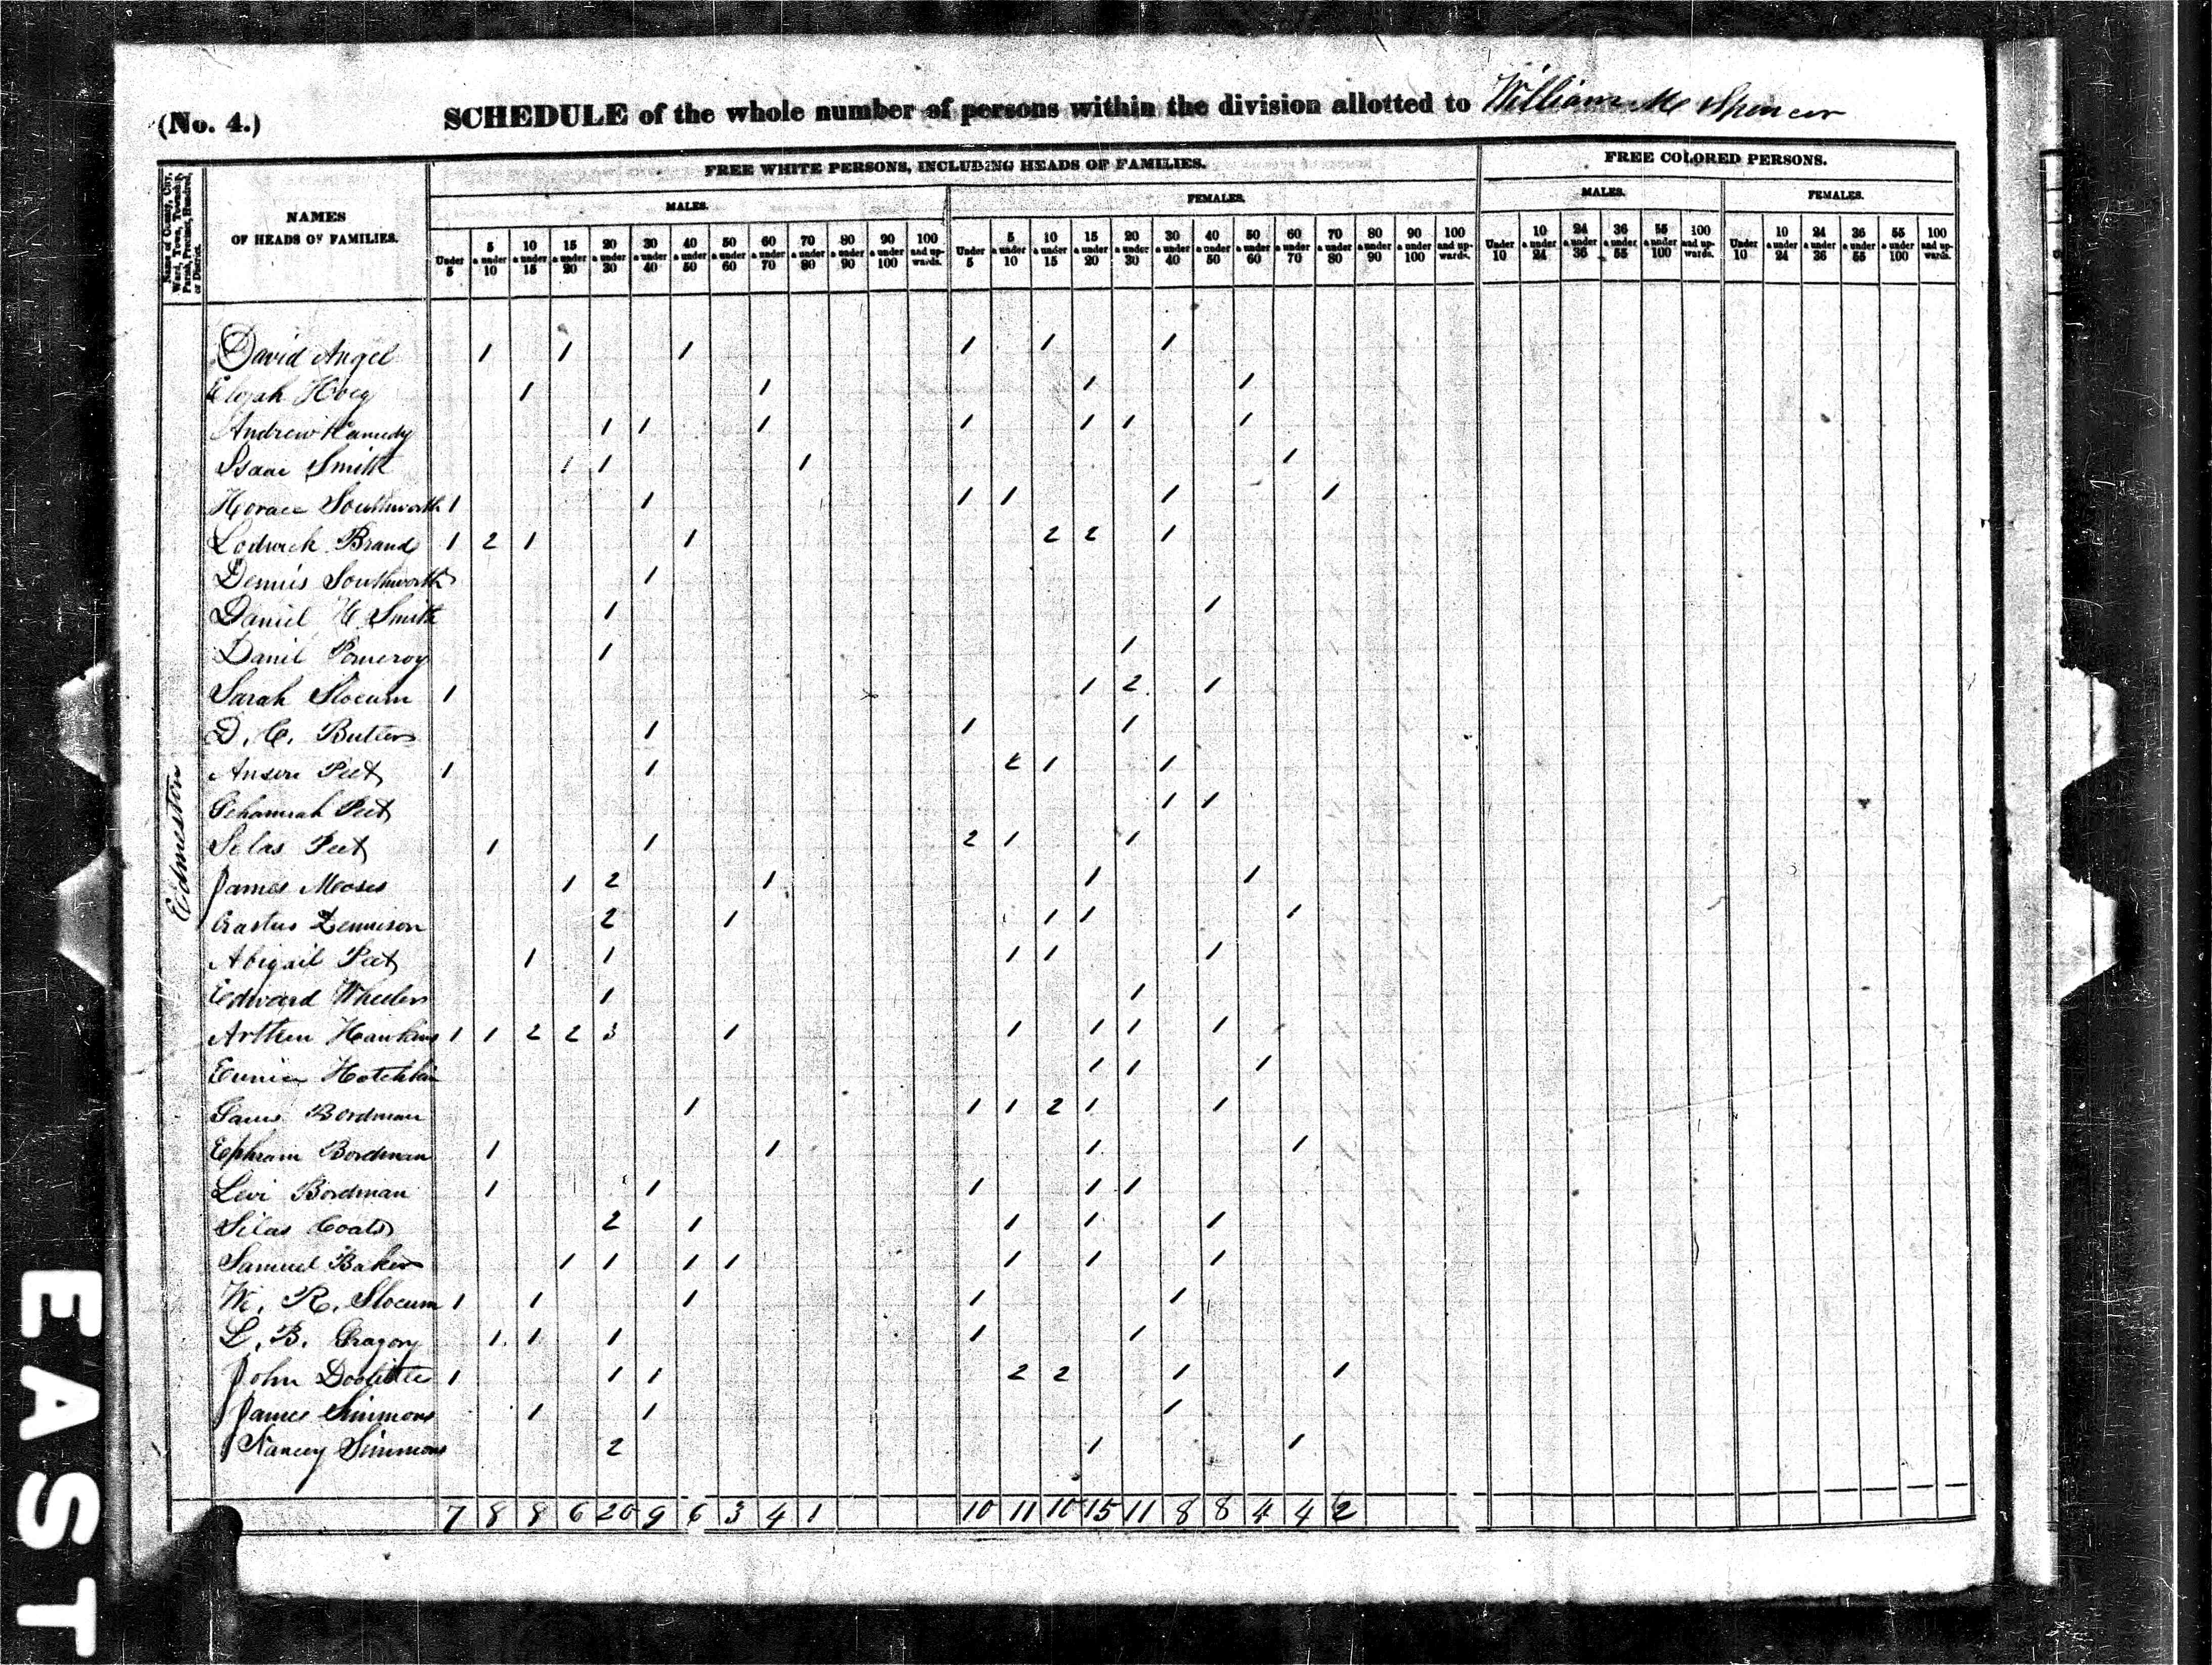 (No. 4.) SCHEDULE of the whole number of persons within the division allotted to William M Spencer
Name of County, City, Ward, Town, Township, Parish, Precinct, Hundred, or District.
NAMES OF HEADS OF FAMILIES.
FREE WHITE PERSONS, INCLUDING HEADS OF FAMILIES.
FREE COLORED PERSONS.
MALES. FEMALES. MALES. FEMALES.
Under 5 5 & under 10 10 & under 15 15 & under 20 20 & under 30 30 & under 40 40 & under 50 50 & under 60 60 & under 70 70 & under 80 80 & under 90 90 & under 100 100 and upwards.
Under 5 5 & under 10 10 & under 15 15 & under 20 20 & under 30 30 & under 40 40 & under 50 50 & under 60 60 & under 70 70 & under 80 80 & under 90 90 & under 100 100 and upwards.
Under 10 10 & under 24 24 & under 36 36 & under 55 55 & under 100 100 and upwards.
Under 10 10 & under 24 24 & under 36 36 & under 55 55 & under 100 100 and upwards.
Edmeston
David Angel 1 1 1 1 1 1
Elijah Hoeg 1 1 1 1
Andrew Kanedy 1 1 1 1 1 1 1
Isaac Smith 1 1 1 1
Horace Southworth 1 1 1 1 1 1
Lodwick Brand 1 2 1 1 2 2 1
Dennis Southworth 1
Daniel H Smith 1 1
Danil Pomeroy 1 1
Sarah Slocum 1 1 2 1
D. C. Butler 1 1 1
Anson Peet 1 1 1 1
Peet 1 1
Silas Peet 1 1 2 1 1
James Moses 1 2 1 1 1
Erastus Dennison 2 1 1 1 1
Abigail Peet 1 1 1 1 1
Edward Wheeler 1 1
Hawkins 1 1 2 2 3 1 1 1 1 1
Eunice Hotchkin 1 1 1
Bordman 1 1 1 2 1 1
Ephraim Bordman 1 1 1 1
Levi Bordman 1 1 1 1 1
Silas Coats 2 1 1 1 1
Samuel Baker 1 1 1 1 1 1 1
W. R. Slocum 1 1 1 1 1
L. B. Gragory 1 1 1 1 1
John Doolittle 1 1 1 2 2 1 1
James Simmons 1 1 1
Nancey Simmons 2 1 1
7 8 8 6 20 9 6 3 4 1 10 11 10 15 11 8 8 4 4 2
EAST